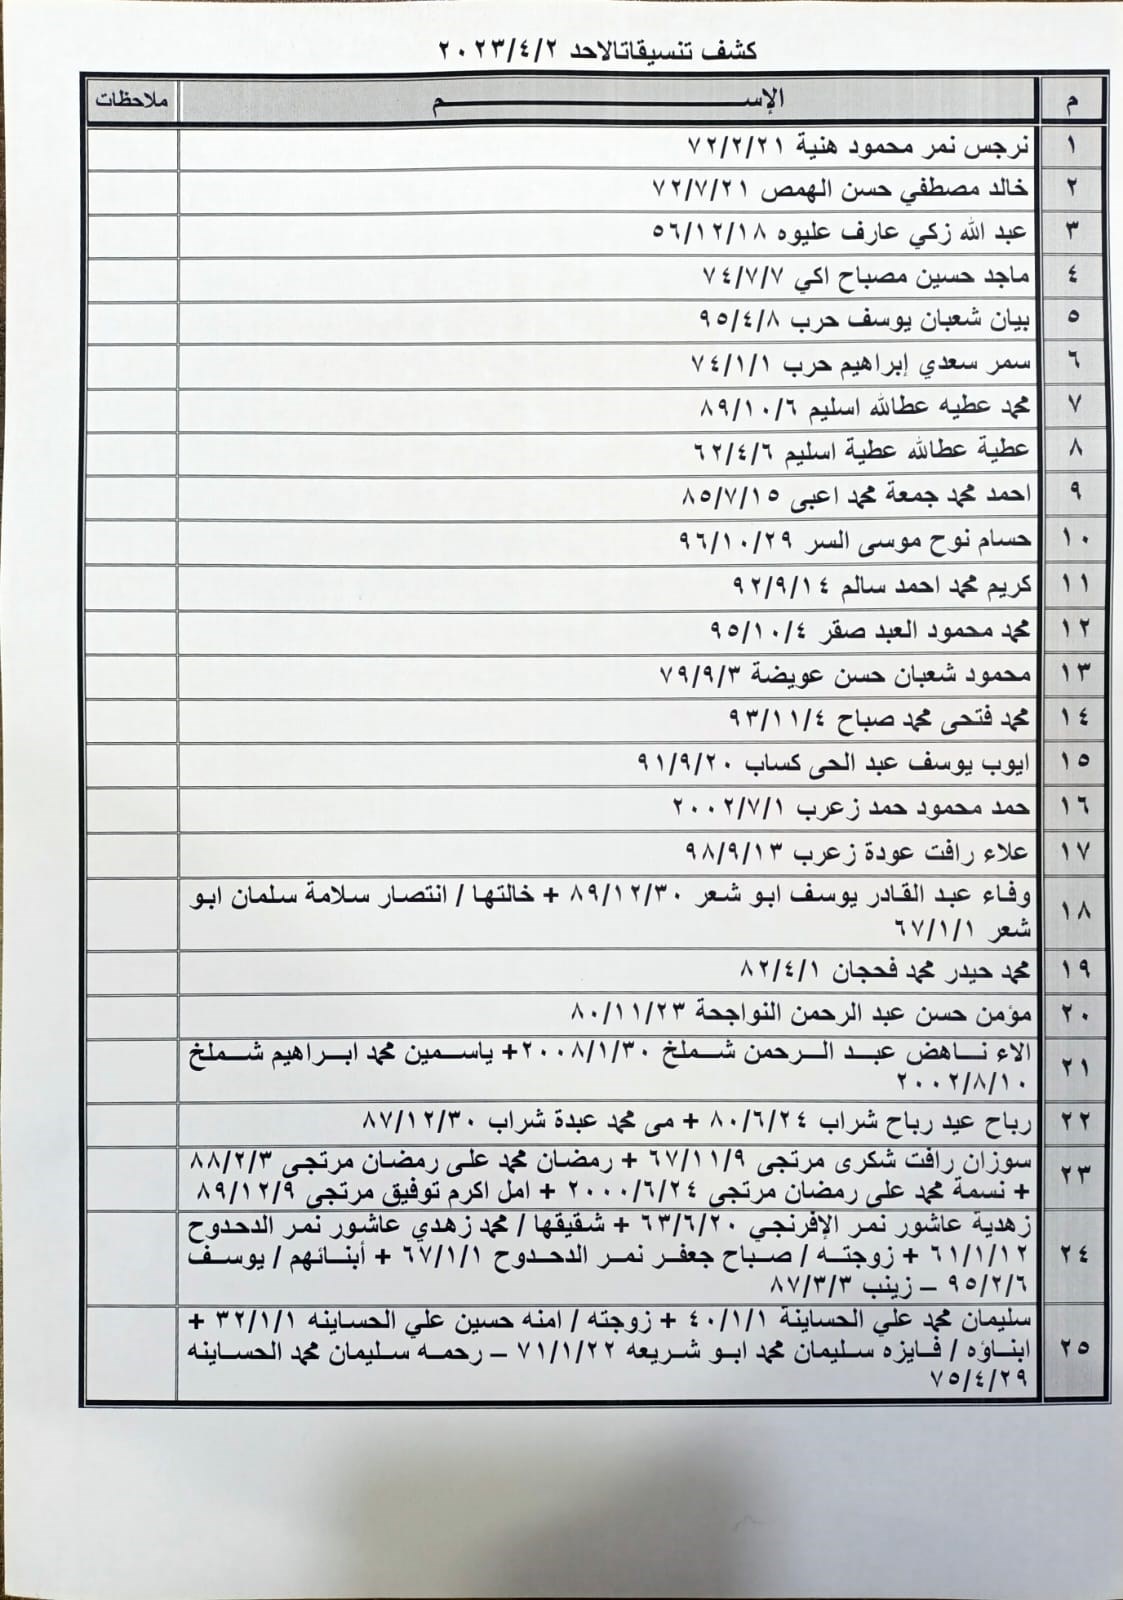 كشف تنسيقاتالاحد ٢٠٢٣/٤/٢
م الإســـــــــم ملاحظات
١ نرجس نمر محمود هنية ٧٢/٢/٢١
٢ خالد مصطفي حسن الهمص ٧٢/٧/٢١
٣ عبد الله زكي عارف عليوه ٥٦/١٢/١٨
٤ ماجد حسين مصباح اكي ٧٤/٧/٧
٥ بيان شعبان يوسف حرب ٩٥/٤/٨
٦ سمر سعدي إبراهيم حرب ٧٤/١/١
٧ محمد عطيه عطالله اسليم ٨٩/١٠/٦
٨ عطية عطالله عطية اسليم ٦٢/٤/٦
٩ احمد محمد جمعة محمد اعبى ٨٥/٧/١٥
١٠ حسام نوح موسى السر ٩٦/١٠/٢٩
١١ كريم محمد احمد سالم ٩٢/٩/١٤
١٢ محمد محمود العبد صقر ٩٥/١٠/٤
١٣ محمود شعبان حسن عويضة ٧٩/٩/٣
١٤ محمد فتحى محمد صباح ٩٣/١١/٤
١٥ ايوب يوسف عبد الحى كساب ٩١/٩/٢٠
١٦ حمد محمود حمد زعرب ٢٠٠٢/٧/١
١٧ علاء رافت عودة زعرب ٩٨/٩/١٣
١٨ وفاء عبد القادر يوسف ابو شعر ٨٩/١٢/٣٠ + خالتها / انتصار سلامة سلمان ابو
شعر ٦٧/١/١
١٩ محمد حيدر محمد فحجان ٨٢/٤/١
٢٠ مؤمن حسن عبد الرحمن النواجحة ٨٠/١١/٢٣
٢١ الاء ناهض عبد الرحمن شملخ ٢٠٠٨/١/٣٠+ ياسمين محمد ابراهيم شملخ
٢٠٠٢/٨/١٠
٢٢ رباح عيد رباح شراب ٨٠/٦/٢٤ + مى محمد عبدة شراب ٨٧/١٢/٣٠
٢٣ سوزان رافت شكرى مرتجى ٦٧/١١/٩ + رمضان محمد على رمضان مرتجى ٨٨/٢/٣
+ نسمة محمد على رمضان مرتجي ٢٠٠٠/٦/٢٤ + امل اكرم توفيق مرتجي ٨٩/١٢/٩
٢٤ زهدية عاشور نمر الإفرنجي ٦٣/٦/٢٠ + شقيقها / محمد زهدي عاشور نمر الدحدوح
٦١/١/١٢ + زوجته / صباح جعفر نمر الدحدوح ٦٧/١/١ + أبنائهم / يوسف
٩٥/٢/٦ – زينب ٨٧/٣/٣
٢٥ سليمان محمد علي الحساينة ٤٠/١/١ + زوجته / امنه حسين علي الحساينه ٣٢/١/١ +
ابناؤه / فايزه سليمان محمد ابو شريعه ٧١/١/٢٢ – رحمه سليمان محمد الحساينه
٧٥/٤/٢٩